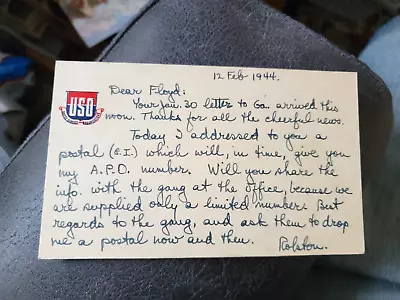 12 Feb 1944.
Dear Floyd:
USO
Your Jan. 30 letter to Ga. arrived this
noon. Thanks for all the cheerful news.
Today I addressed to you a
postal (C.I.) which will, in time, give you
my A.P.O. number. Will you share the
info. with the gang at the office, because we
are supplied only a limited number. But
regards to the gang, and ask them to drop
me a postal now and then. Rolston.